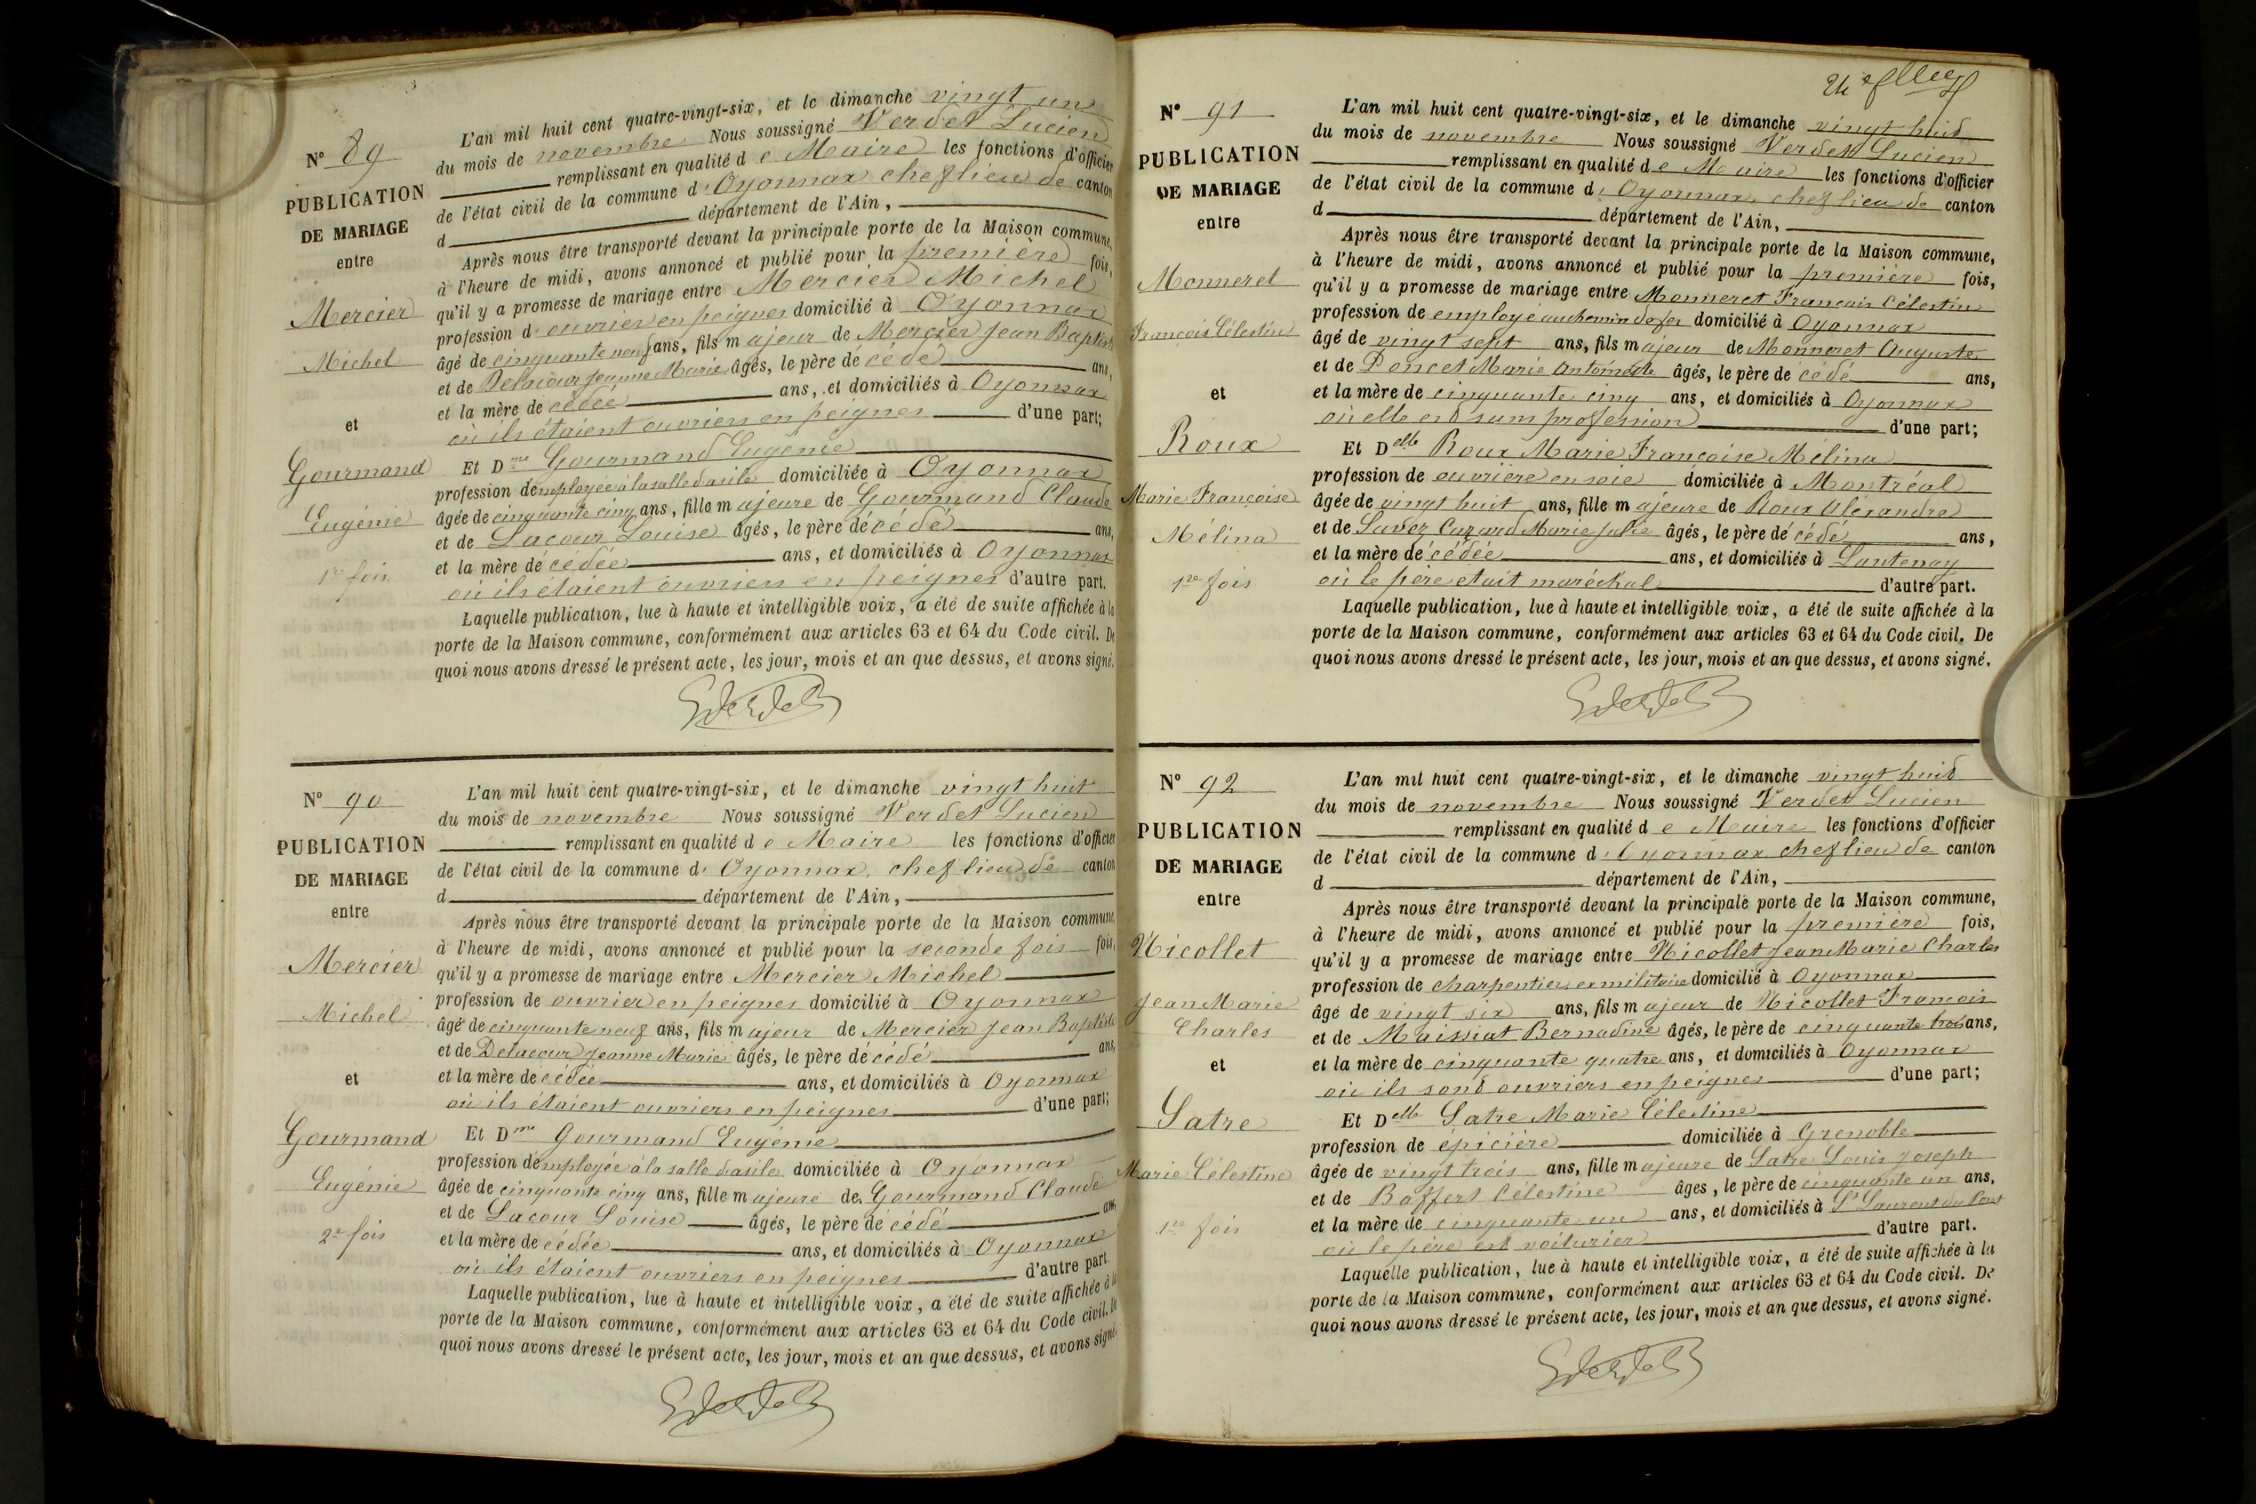 N° 89
PUBLICATION
DE MARIAGE
entre
Mercier
Michel
et
Gourmand
Eugénie
1re fois
L'an mil huit cent quatre-vingt-six, et le dimanche vingt un
du mois de novembre Nous soussigné Verdet Lucien
remplissant en qualité de Maire les fonctions d'officier
de l'état civil de la commune d'Oyonnax chef lieu de canton
d département de l'Ain,
Après nous être transporté devant la principale porte de la Maison commune,
à l'heure de midi, avons annoncé et publié pour la première fois,
qu'il y a promesse de mariage entre Mercier Michel
profession d'ouvrier en peignes domicilié à Oyonnax
âgé de cinquante neuf ans, fils majeur de Mercier Jean Baptiste
et de Delacour Jeanne Marie âgés, le père décédé ans,
et la mère de cédée ans, et domiciliés à Oyonnax
où ils étaient ouvriers en peignes d'une part;
Et Dme Gourmand Eugénie
profession d'employée à la salle d'asile domiciliée à Oyonnax
âgée de cinquante cinq ans, fille majeure de Gourmand Claude
et de Lacour Louise âgés, le père décédé ans,
et la mère décédée ans, et domiciliés à Oyonnax
où ils étaient ouvriers en peignes d'autre part.
Laquelle publication, lue à haute et intelligible voix, a été de suite affichée à la
porte de la Maison commune, conformément aux articles 63 et 64 du Code civil. De
quoi nous avons dressé le présent acte, les jour, mois et an que dessus, et avons signé.
N° 90
PUBLICATION
DE MARIAGE
entre
Mercier
Michel
et
Gourmand
Eugénie
2e fois
L'an mil huit cent quatre-vingt-six, et le dimanche vingt huit
du mois de novembre Nous soussigné Verdet Lucien
remplissant en qualité de Maire les fonctions d'officier
de l'état civil de la commune d'Oyonnax, chef lieu de canton
d département de l'Ain,
Après nous être transporté devant la principale porte de la Maison commune,
à l'heure de midi, avons annoncé et publié pour la seconde fois fois,
qu'il y a promesse de mariage entre Mercier Michel
profession de ouvrier en peignes domicilié à Oyonnax
âgé de cinquante neuf ans, fils majeur de Mercier Jean Baptiste
et de Delacour Jeanne Marie âgés, le père décédé ans,
et la mère de cédée ans, et domiciliés à Oyonnax
où ils étaient ouvriers en peignes d'une part;
Et Dme Gourmand Eugénie
profession d'employée à la salle d'asile domiciliée à Oyonnax
âgée de cinquante cinq ans, fille majeure de Gourmand Claude
et de Lacour Louise âgés, le père décédé ans,
et la mère de cédée ans, et domiciliés à Oyonnax
où ils étaient ouvriers en peignes d'autre part
Laquelle publication, lue à haute et intelligible voix, a été de suite affichée à la
porte de la Maison commune, conformément aux articles 63 et 64 du Code civil. De
quoi nous avons dressé le présent acte, les jour, mois et an que dessus, et avons signé.
N° 91
PUBLICATION
DE MARIAGE
entre
Monneret
François Célestin
et
Roux
Marie Françoise
Mélina
1re fois
L'an mil huit cent quatre-vingt-six, et le dimanche vingt huit
du mois de novembre Nous soussigné Verdet Lucien
remplissant en qualité de Maire les fonctions d'officier
de l'état civil de la commune d'Oyonnax, chef lieu de canton
d département de l'Ain,
Après nous être transporté devant la principale porte de la Maison commune,
à l'heure de midi, avons annoncé et publié pour la première fois,
qu'il y a promesse de mariage entre Monneret François Célestin
profession de employé au chemin de fer domicilié à Oyonnax
âgé de vingt sept ans, fils majeur de Monneret Auguste
et de Poncet Marie Antoinette âgés, le père de cédé ans,
et la mère de cinquante cinq ans, et domiciliés à Oyonnax
où elle est sans profession d'une part;
Et Delle Roux Marie Françoise Mélina
profession de ouvrière en soie domiciliée à Montréal
âgée de vingt huit ans, fille majeure de Roux Alexandre
et de Savez Cuzard Marie Julie âgés, le père décédé ans,
et la mère décédée ans, et domiciliés à Lantenay
où le père était maréchal d'autre part.
Laquelle publication, lue à haute et intelligible voix, a été de suite affichée à la
porte de la Maison commune, conformément aux articles 63 et 64 du Code civil. De
quoi nous avons dressé le présent acte, les jour, mois et an que dessus, et avons signé.
N° 92
PUBLICATION
DE MARIAGE
entre
Nicollet
Jean Marie
Charles
et
Satre
Marie Célestine
1re fois
L'an mil huit cent quatre-vingt-six, et le dimanche vingt huit
du mois de novembre Nous soussigné Verdet Lucien
remplissant en qualité de Maire les fonctions d'officier
de l'état civil de la commune d'Oyonnax chef lieu de canton
d département de l'Ain,
Après nous être transporté devant la principale porte de la Maison commune,
à l'heure de midi, avons annoncé et publié pour la première fois,
qu'il y a promesse de mariage entre Nicollet Jean Marie Charles
profession de charpentier ex militaire domicilié à Oyonnax
âgé de vingt six ans, fils majeur de Nicollet François
et de Maissiat Bernadine âgés, le père de cinquante trois ans,
et la mère de cinquante quatre ans, et domiciliés à Oyonnax
où ils sont ouvriers en peignes d'une part;
Et Delle Satre Marie Célestine
profession de épicière domiciliée à Grenoble
âgée de vingt trois ans, fille majeure de Satre Louis Joseph
et de Boffert Célestine âgés, le père de cinquante un ans,
et la mère de cinquante un ans, et domiciliés à St Laurent du Pont
où le père est voiturier d'autre part.
Laquelle publication, lue à haute et intelligible voix, a été de suite affichée à la
porte de la Maison commune, conformément aux articles 63 et 64 du Code civil. De
quoi nous avons dressé le présent acte, les jour, mois et an que dessus, et avons signé.